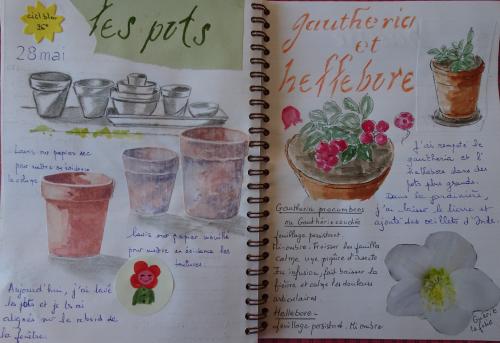 ciel bleu
36°
les pots
28 mai
Lavis sur papier sec
pour mettre en évidence
le galbe
lavis sur papier mouillé
pour mettre en évidence les
textures.
Aujourd'hui, j'ai lavé
les pots et je les ai
alignés sur le rebord de
la fenêtre.
gautheria
et
hellebore
J'ai rempoté le
gautheria et l'
hellebore dans des
pots plus grands.
Dans la jardinière,
j'ai laissé le lierre et
ajouté des œillets d'Inde.
Gautheria procumbens
ou Gaulthérie couchée
feuillage persistant.
Pénombre. Froisser les feuilles
calme une piqûre d'insecte
En infusion, fait baisser la
fièvre et calme les douleurs
articulaires
Hellebore
feuillage persistant. Mi ombre